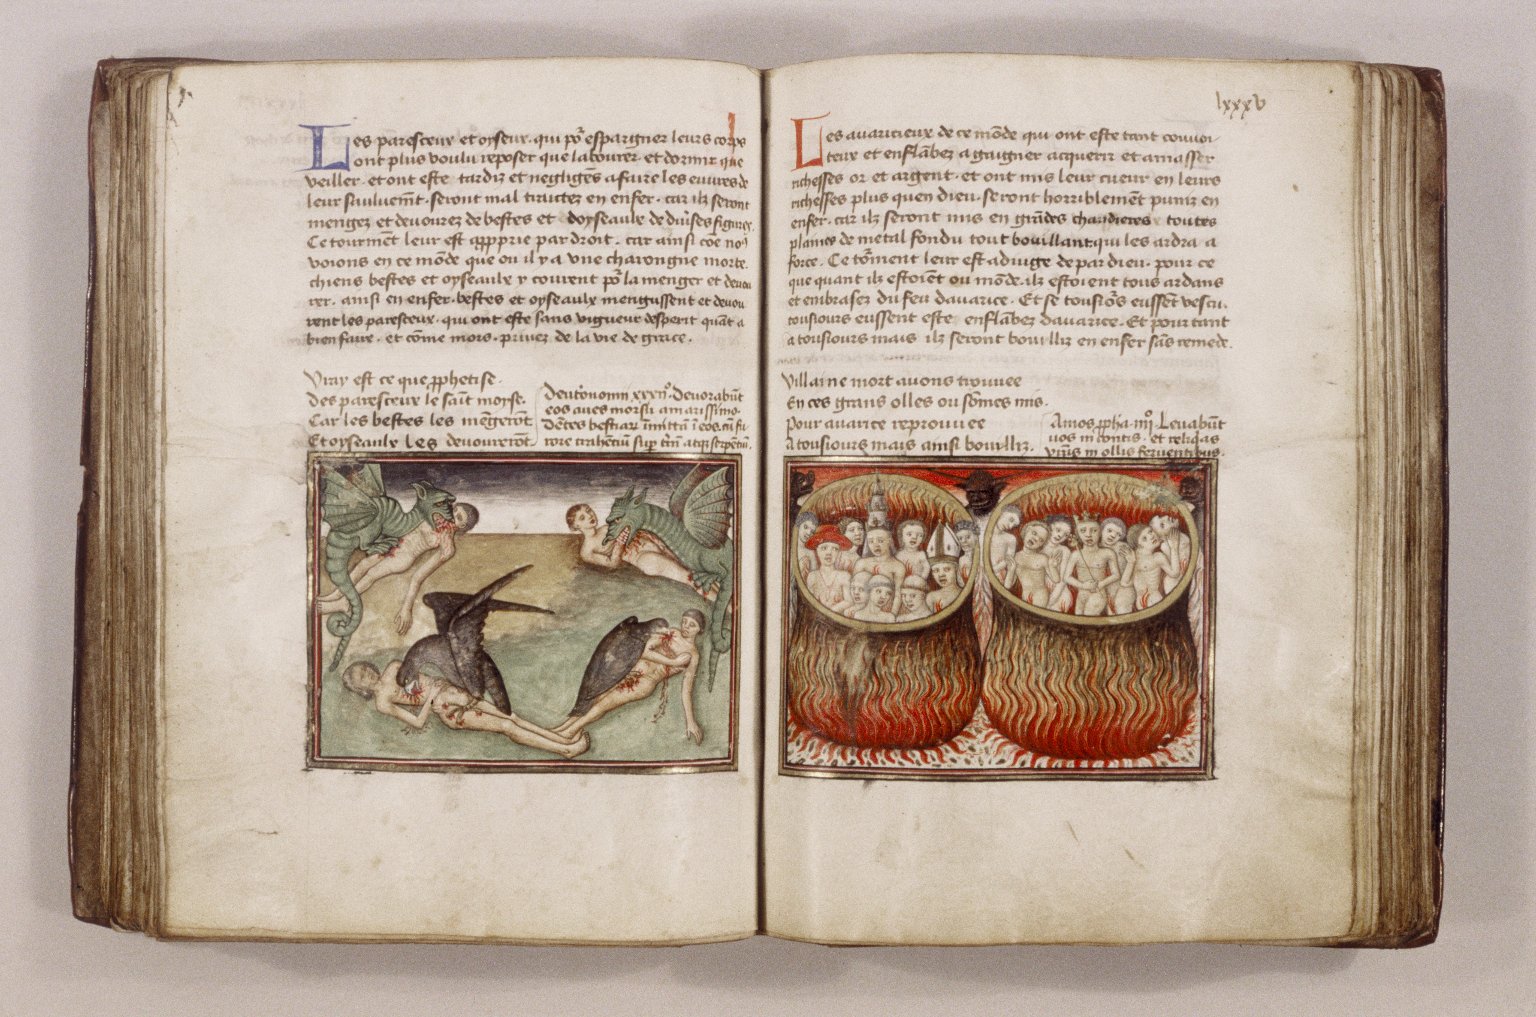 Les paresceux et oyseux. qui po᷑ espargner leurs corps
ont plus voulu reposer que labourer. et dormir que
veiller. et ont este tardiz et negligẽs a faire les euvres de
leur sauluemẽt. seront mal traictez en enfer. car ilz seront
mengez et devourez de bestes et doyseaulx de diũses figures.
Ce tourmẽt leur est apprprie par droit. car ainsi cõe noꝰ
voions en ce mõde que ou il y a une charongne morte.
chiens bestes et oyseaulx y courent po᷑ la menger et devou
rer. ainsi en enfer. bestes et oyseaulx mengussent et devou
rent les paresceux. qui ont este sans vigueur desperit quãt a
bien faire. et cõme mors. privez de la vie de grace.
Vray est ce que ꝓphetise.
Des paresceux le saĩt moyse.
Car les bestes les mẽgerõt
Et oyseaulx les devourerõt
Deutronomii xxxii°. Devorabũt
eos aves morsu amarissimo.
Dẽtes bestiarꝝ ĩmittã ĩ eos. cũ fu
rore trahẽtiũ sup t̃rã atqꝫ serpẽtiũ.
lxxxv
Les avaricieux de ce mõde qui ont este tant convoi-
teux et enflãbez a gaigner acquerir et amasser
richesses or et argent. et ont mis leur cueur en leurs
richesses plus quen dieu. seront horriblemẽt puniz en
enfer. car ilz seront mis en grãdes chaudieres toutes
plaines de metal fondu tout bouillant. qui les ardra a
force. Ce to᷑ment leur est adiuge de par dieu. pour ce
que quant ilz estoiẽt ou mõde. ilz estoient tous ardans
et embrasez du feu davarice. Et se tousio᷑s eussẽt vescu.
tousiours eussent este enflãbez davarice. Et pourtant
a tousiours mais ilz seront bouilliz en enfer sãs remede.
Villaine mort avons trouvee
En ces grans olles ou sõmes mis.
Pour avarice reprouvee
A tousiours mais ainsi bouilliz.
Amos ꝓpha. iiii°. Levabũt
vos in contis. et reliqĩas
vr̃as in ollis ferventibus.